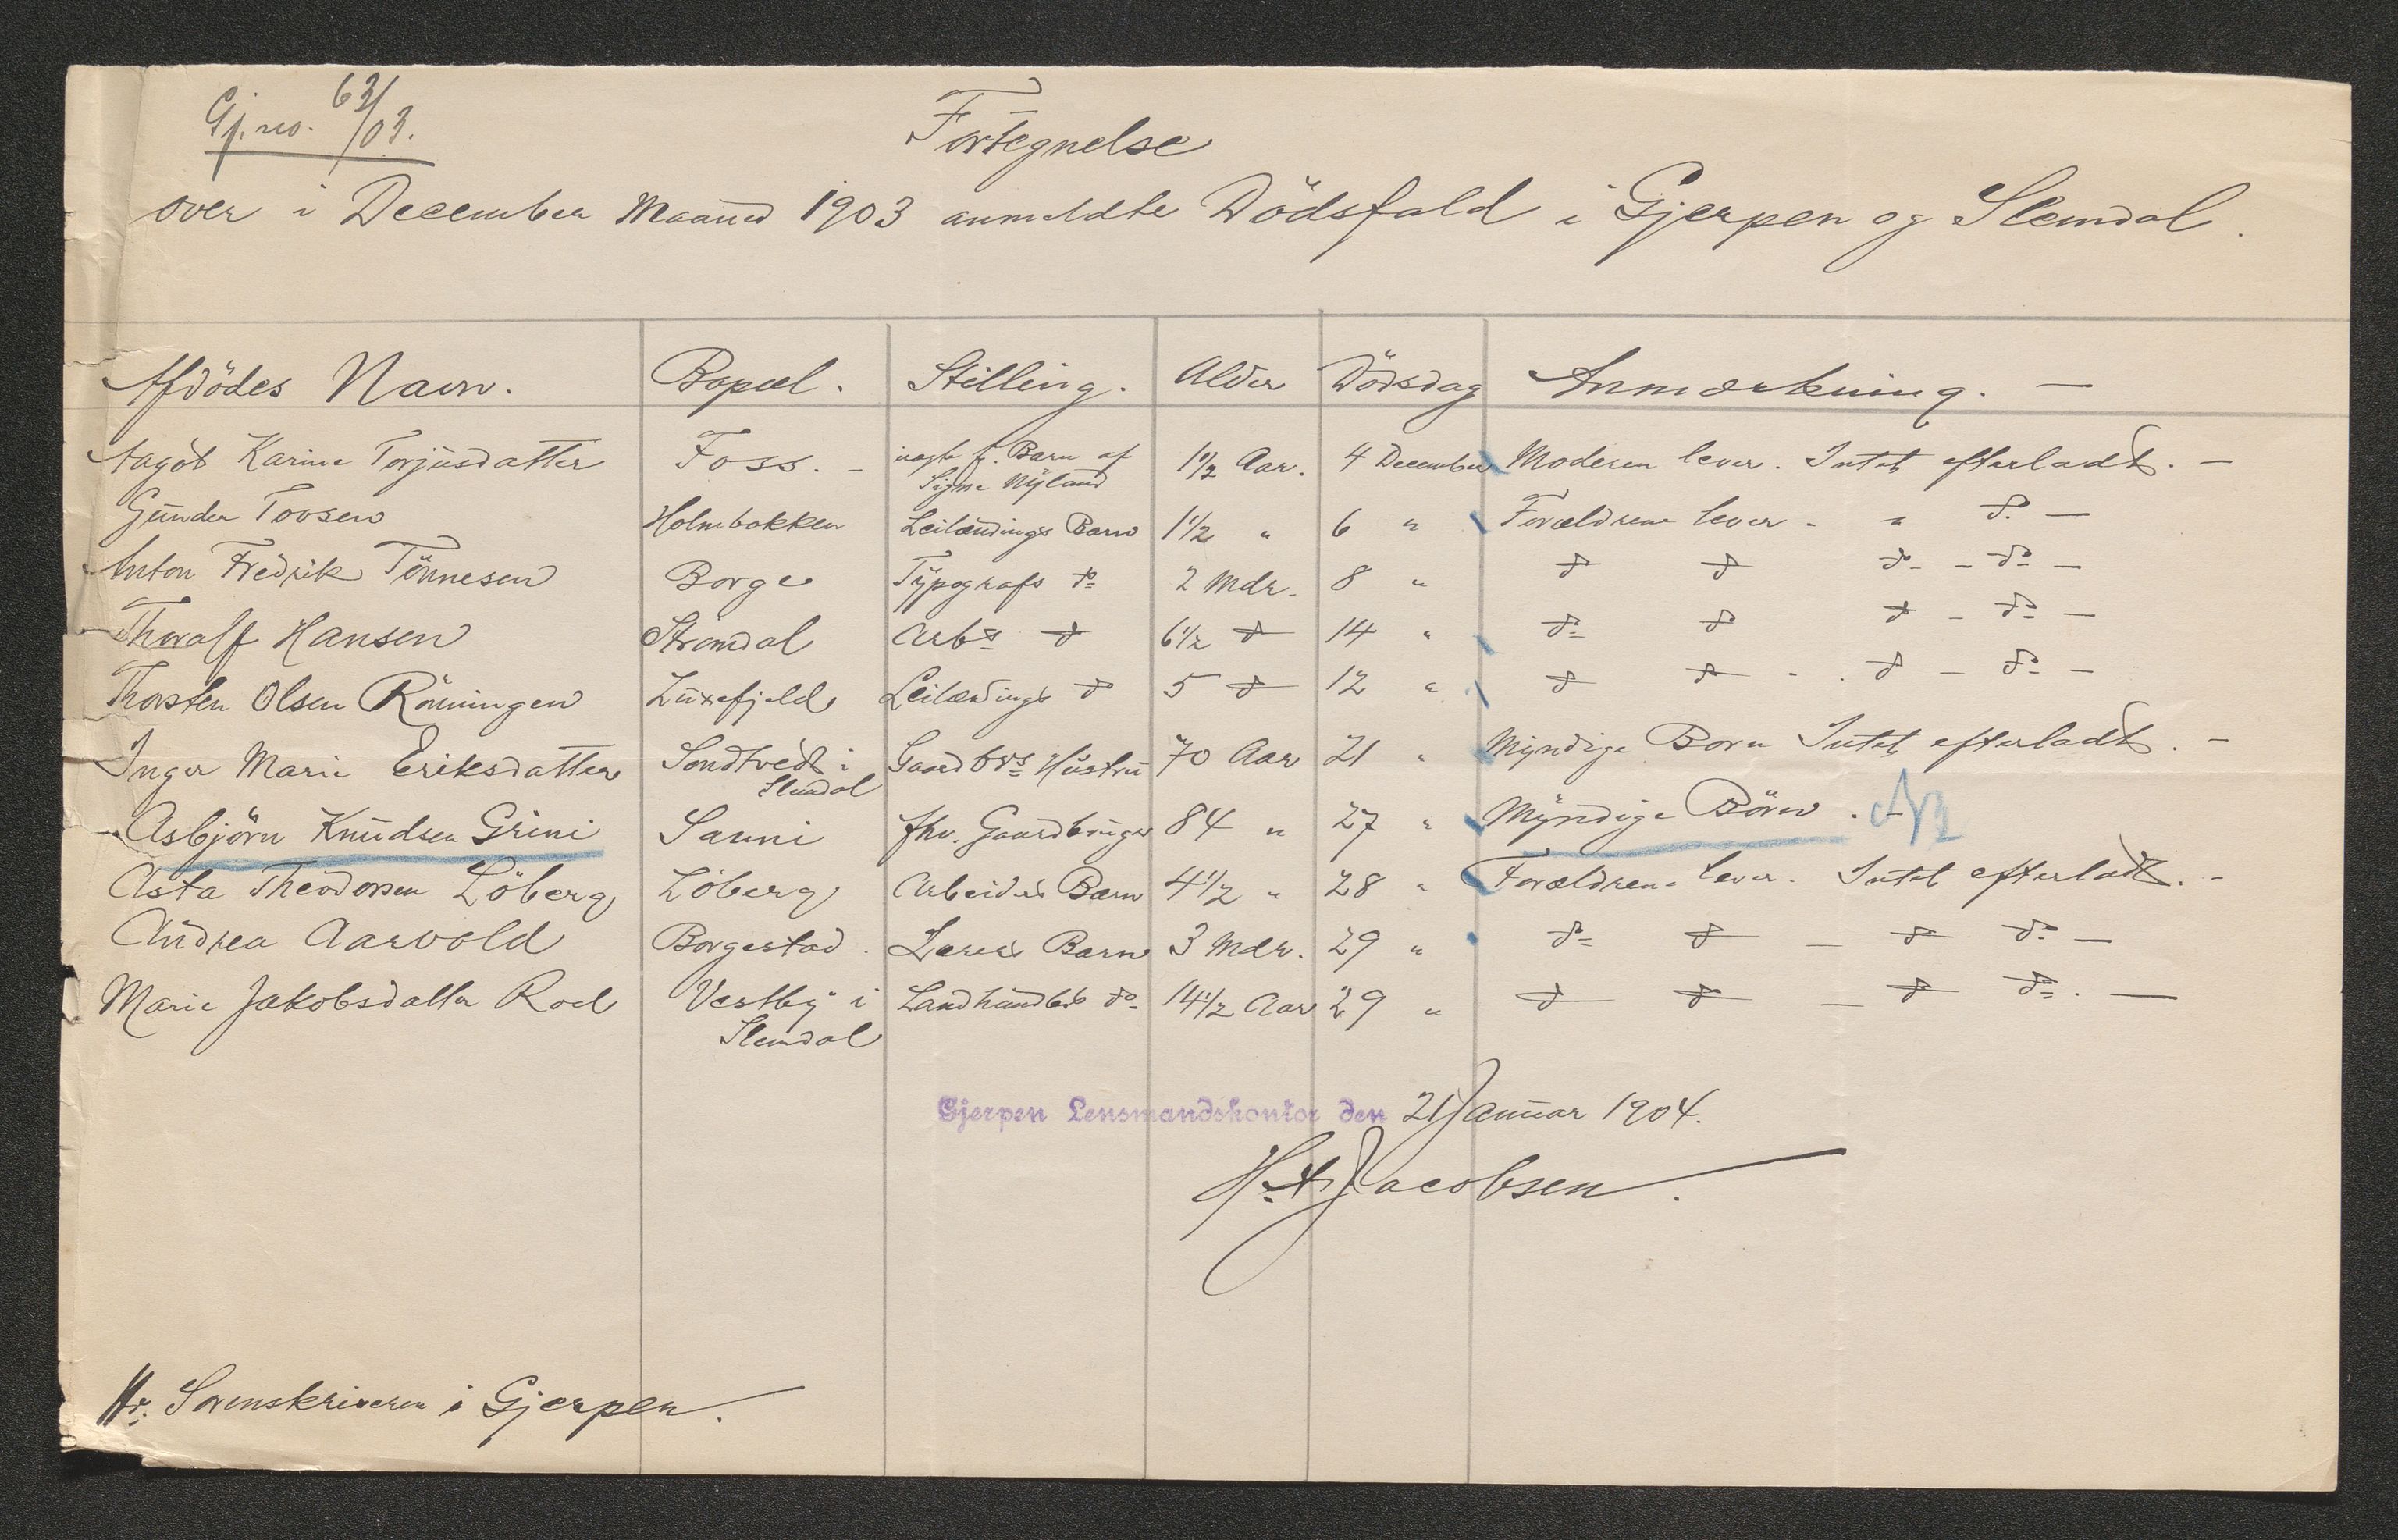 Gj. no. 63/03.
Fortegnelse
over i December Maaned 1903 anmeldte Dödsfald i Gjerpen og Slemdal.
Afdödes Navn. Bopæl. Stilling. Alder Dödsdag Anmærkning. —
Aagot Karine Torjusdatter Foss. — uægte f. Barn af Signe Nyland 1 1/2 Aar. 4 December Moderen lever. Intet efterladt. —
Gunder Tovsen Holmbakken Leilændings Barn 1 1/2 " 6 " Forældrene lever - " do. —
Anton Fredrik Tönnesen Borge Typografs do 2 Mdr. 8 " do do do - do —
Thoralf Hansen Stromdal Arbs do 6 1/2 do 14 " do do do - do —
Thorsten Olsen Rönningen Luxefjeld Leilændings do 5 do 12 " do do - do - do —
Inger Marie Eriksdatter Sondtvedt i Slemdal Gaardbrs Hustru 70 Aar 21 " Myndige Born Intet efterladt. —
Asbjörn Knudsen Grini Sanni fhv. Gaardbruger 84 " 27 " Myndige Börn. —
Asta Theodorsen Löberg Löberg Arbeiders Barn 4 1/2 " 28 " Forældrene lever. Intet efterladt. -
Andrea Aarvold Borgestad. Lærers Barn 3 Mdr. 29 " do do — do do —
Marie Jakobsdatter Roel Vestby i Slemdal Landhandlers do 14 1/2 Aar 29 " do do — do do. —
Gjerpen Lensmandskontor den 21 Januar 1904.
H. A. Jacobsen.
Hr. Sorenskriveren i Gjerpen.